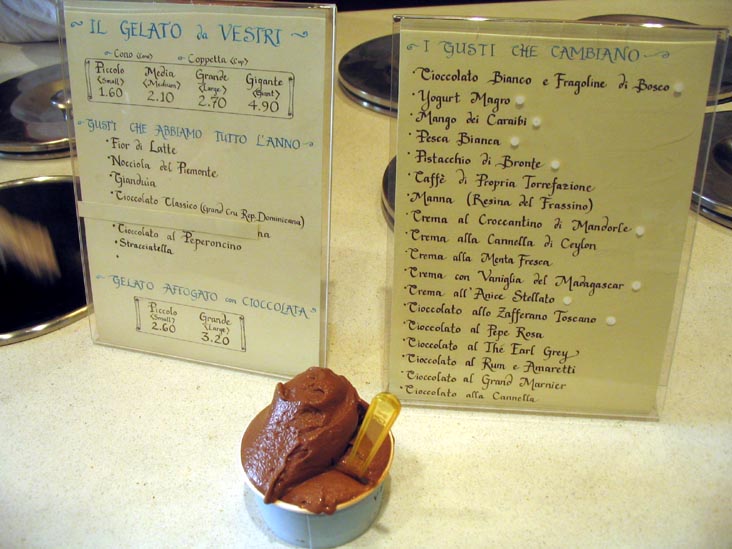 IL GELATO da VESTRI
Cono (Cone) Coppetta (Cup)
Piccolo Media Grande Gigante
(Small) (Medium) (Large) (Giant)
1.60 2.10 2.70 4.90
GUSTI CHE ABBIAMO TUTTO L'ANNO
• Fior di Latte
• Nocciola del Piemonte
• Gianduia
• Cioccolato Classico (Grand Cru Rep. Dominicana)
na
• Cioccolato al Peperoncino
• Stracciatella
•
GELATO AFFOGATO con CIOCCOLATA
Piccolo Grande
(Small) (Large)
2.60 3.20
I GUSTI CHE CAMBIANO
• Cioccolato Bianco e Fragoline di Bosco
• Yogurt Magro
• Mango dei Caraibi
• Pesca Bianca
• Pistacchio di Bronte
• Caffè di Propria Torrefazione
• Manna (Resina del Frassino)
• Crema al Croccantino di Mandorle
• Crema alla Cannella di Ceylon
• Crema alla Menta Fresca
• Crema con Vaniglia del Madagascar
• Crema all'Anice Stellato
• Cioccolato allo Zafferano Toscano
• Cioccolato al Pepe Rosa
• Cioccolato al Thé Earl Grey
• Cioccolato al Rum e Amaretti
• Cioccolato al Grand Marnier
• Cioccolato alla Cannella